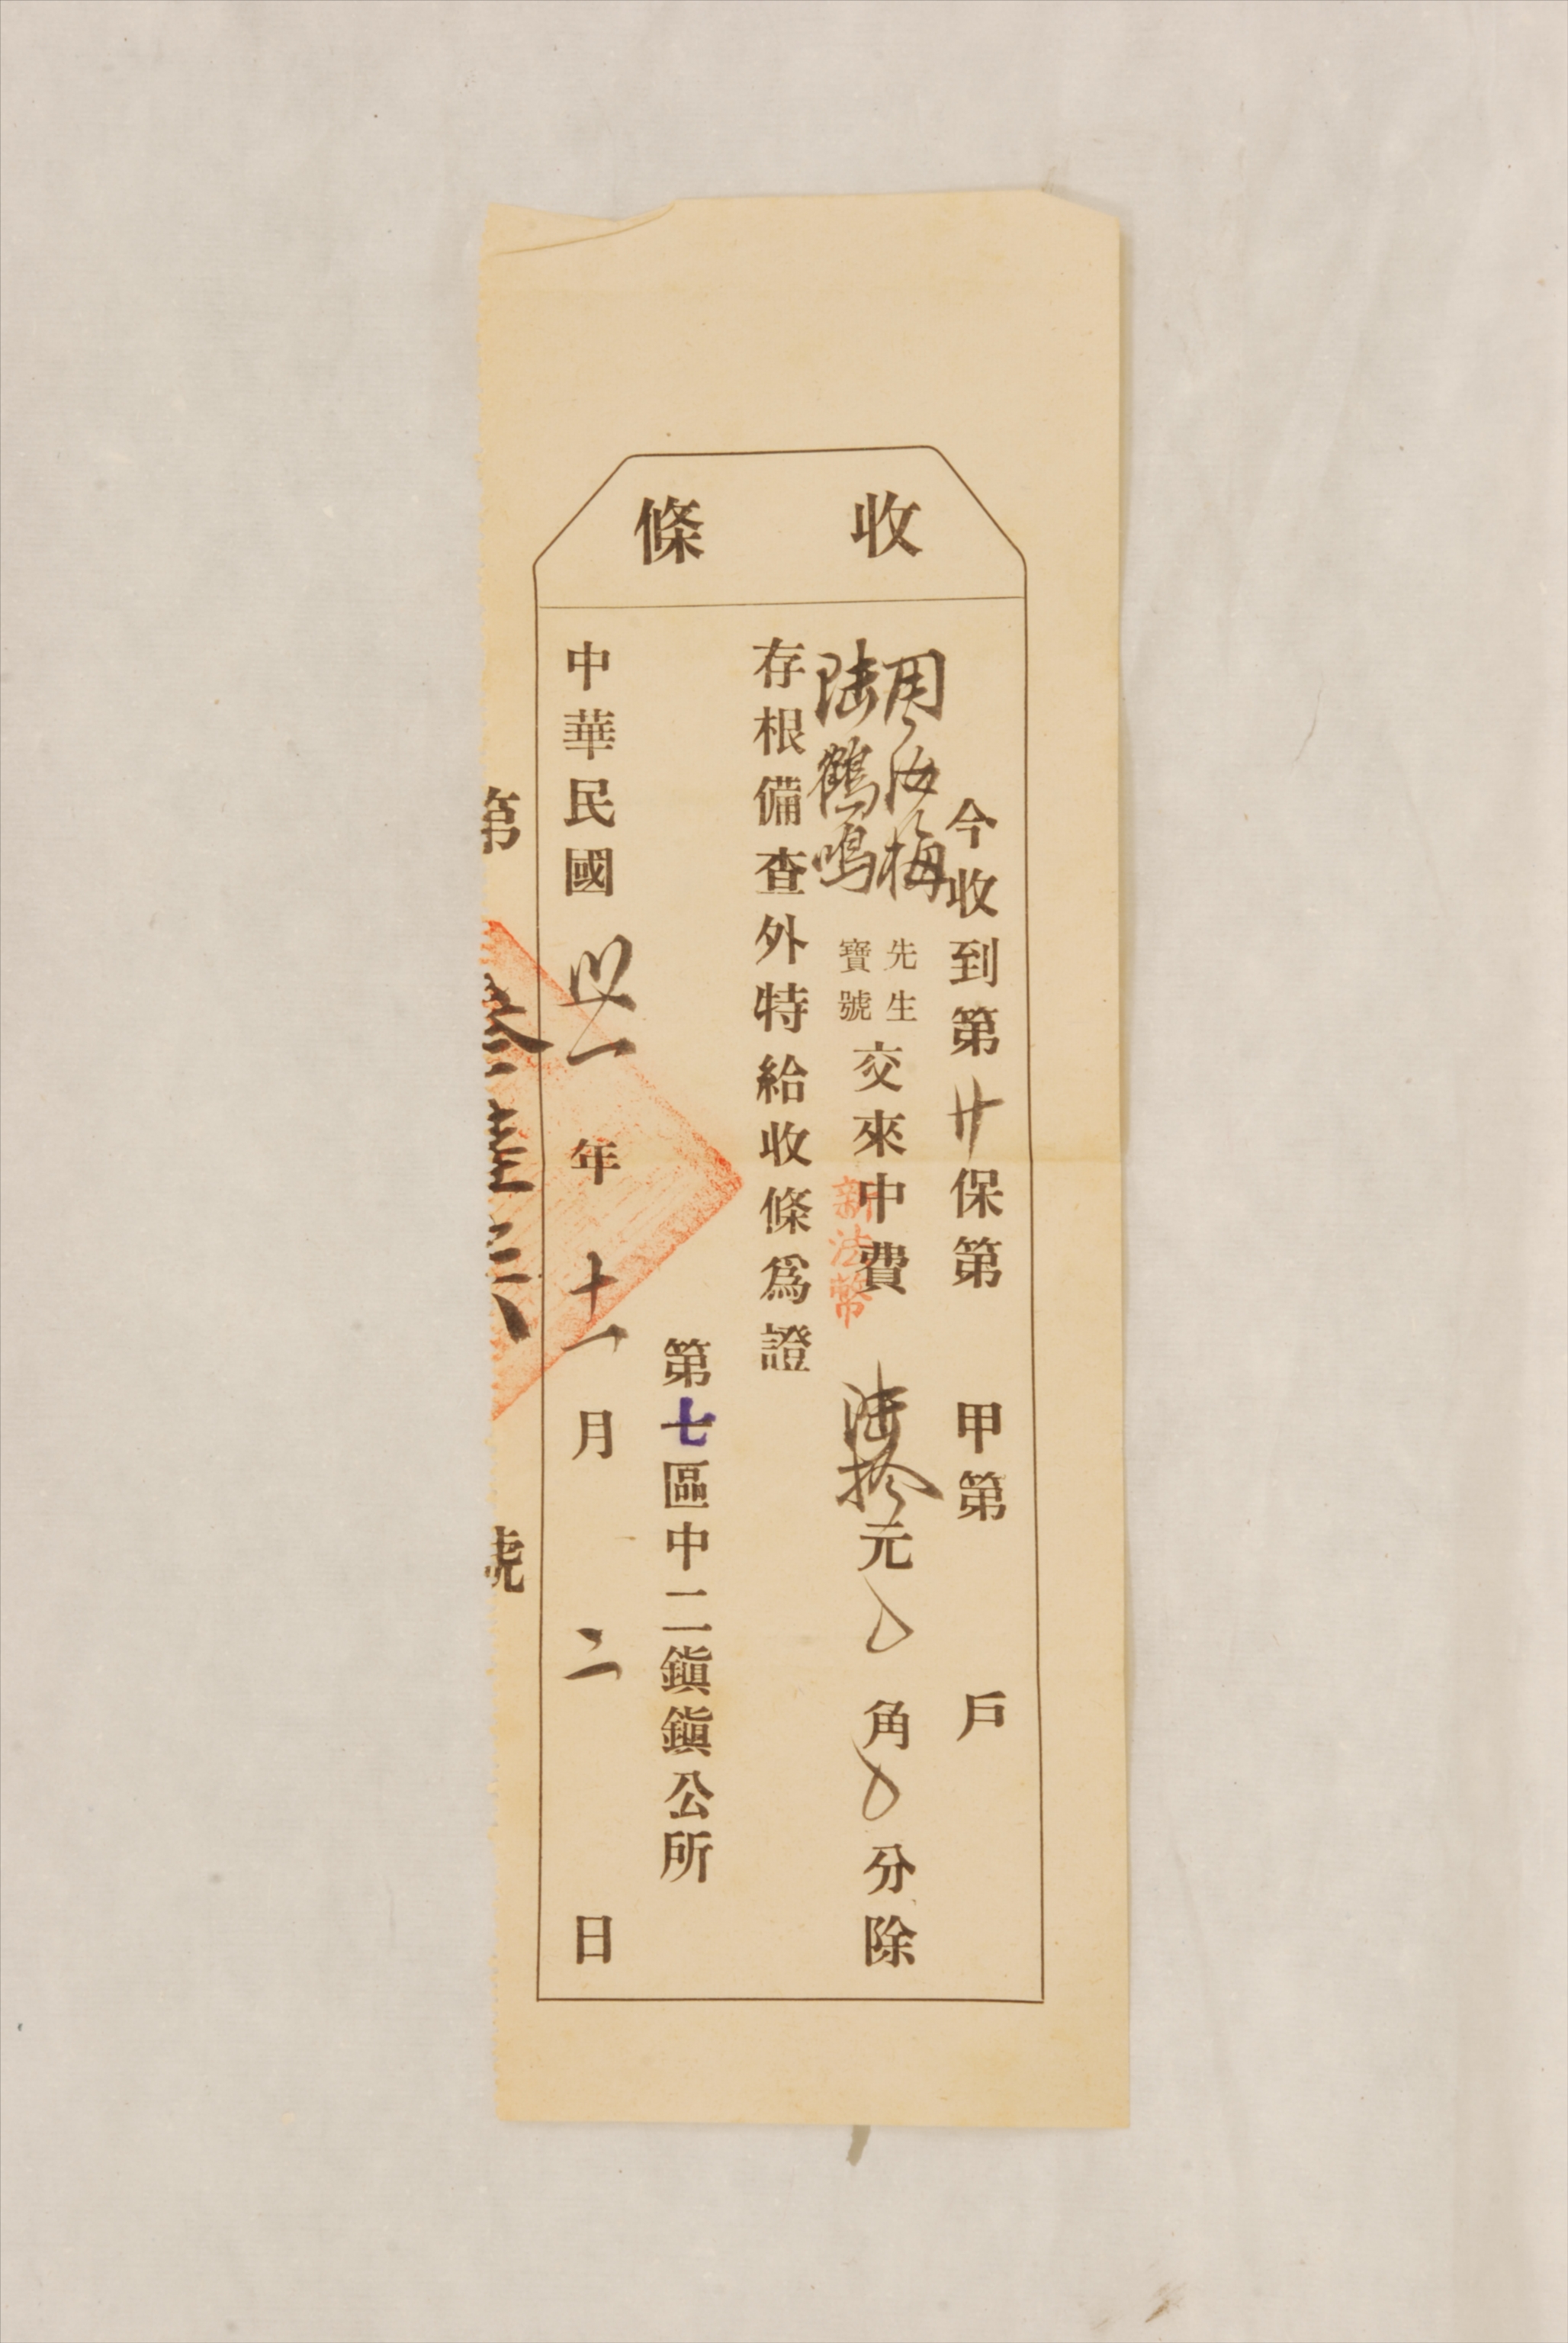 收條
今收到第廿保第甲第戶
周汝梅
陸鶴鳴
先生
寶號
交來中費陸拾元0角0分除
新法幣
存根備查外特給收條爲證
第七區中二鎭鎭公所
中華民國卅一年十一月二日
第號